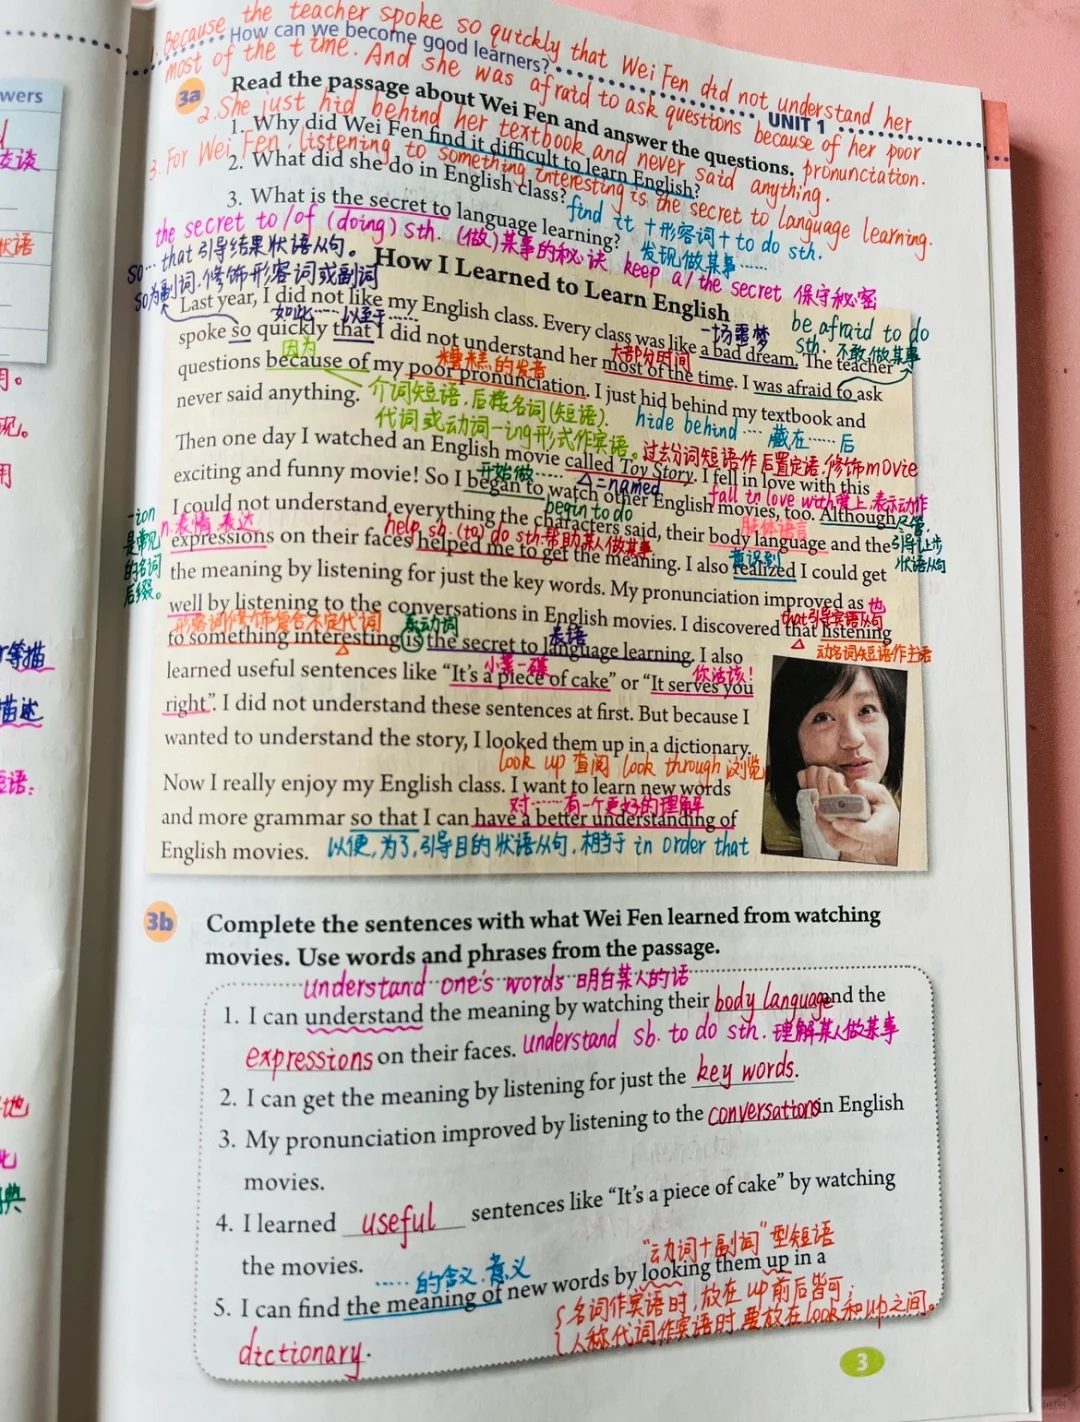 1. Because the teacher spoke so quickly that Wei Fen did not understand her
How can we become good learners?
most of the time. And she was afraid to ask questions because of her poor
UNIT 1
pronunciation.
3a Read the passage about Wei Fen and answer the questions.
2. She just hid behind her textbook and never said anything.
1. Why did Wei Fen find it difficult to learn English?
3. For Wei Fen, listening to something interesting is the secret to language learning.
2. What did she do in English class?
find it + 形容词 + to do sth.
3. What is the secret to language learning?
发现做某事……
the secret to/of (doing) sth. (做)某事的秘诀 keep a/the secret 保守秘密
so…that引导结果状语从句。
so为副词,修饰形容词或副词
How I Learned to Learn English
如此……以至于……
一场噩梦
be afraid to do
sth. 不敢做某事
Last year, I did not like my English class. Every class was like a bad dream. The teacher
因为
糟糕的发音
大部分时间
spoke so quickly that I did not understand her most of the time. I was afraid to ask
questions because of my poor pronunciation. I just hid behind my textbook and
介词短语,后接名词(短语).
代词或动词-ing形式作宾语。
hide behind … 藏在……后
never said anything.
过去分词短语作后置定语,修饰movie
Then one day I watched an English movie called Toy Story. I fell in love with this
开始做……
△=named
fall in love with爱上,表示动作
exciting and funny movie! So I began to watch other English movies, too. Although
begin to do
肢体语言
尽管,
引导让步
状语从句
I could not understand everything the characters said, their body language and the
-ion
是常见
的名词
后缀。
n.表情,表达
help sb. (to) do sth.帮助某人做某事
意识到
expressions on their faces helped me to get the meaning. I also realized I could get
the meaning by listening for just the key words. My pronunciation improved as 也
well by listening to the conversations in English movies. I discovered that listening
形容词修饰复合不定代词
系动词
表语
that引导宾语从句
动名词短语作主语
to something interesting is the secret to language learning. I also
小菜一碟
你活该!
learned useful sentences like “It’s a piece of cake” or “It serves you
right”. I did not understand these sentences at first. But because I
wanted to understand the story, I looked them up in a dictionary.
look up 查阅 look through 浏览
Now I really enjoy my English class. I want to learn new words
对……有一个更好的理解
and more grammar so that I can have a better understanding of
English movies.
以便,为了,引导目的状语从句,相当于 in order that
3b Complete the sentences with what Wei Fen learned from watching
movies. Use words and phrases from the passage.
understand one's words 明白某人的话
1. I can understand the meaning by watching their body language and the
expressions on their faces.
understand sb. to do sth. 理解某人做某事
2. I can get the meaning by listening for just the key words.
3. My pronunciation improved by listening to the conversations in English
movies.
4. I learned useful sentences like “It’s a piece of cake” by watching
the movies.
……的含义,意义
“动词+副词”型短语
5. I can find the meaning of new words by looking them up in a
dictionary.
名词作宾语时,放在up前后皆可;
人称代词作宾语时,要放在look和up之间。
3
wers
交谈
状语
用。
现。
用
等描
描述
短语:
地
典